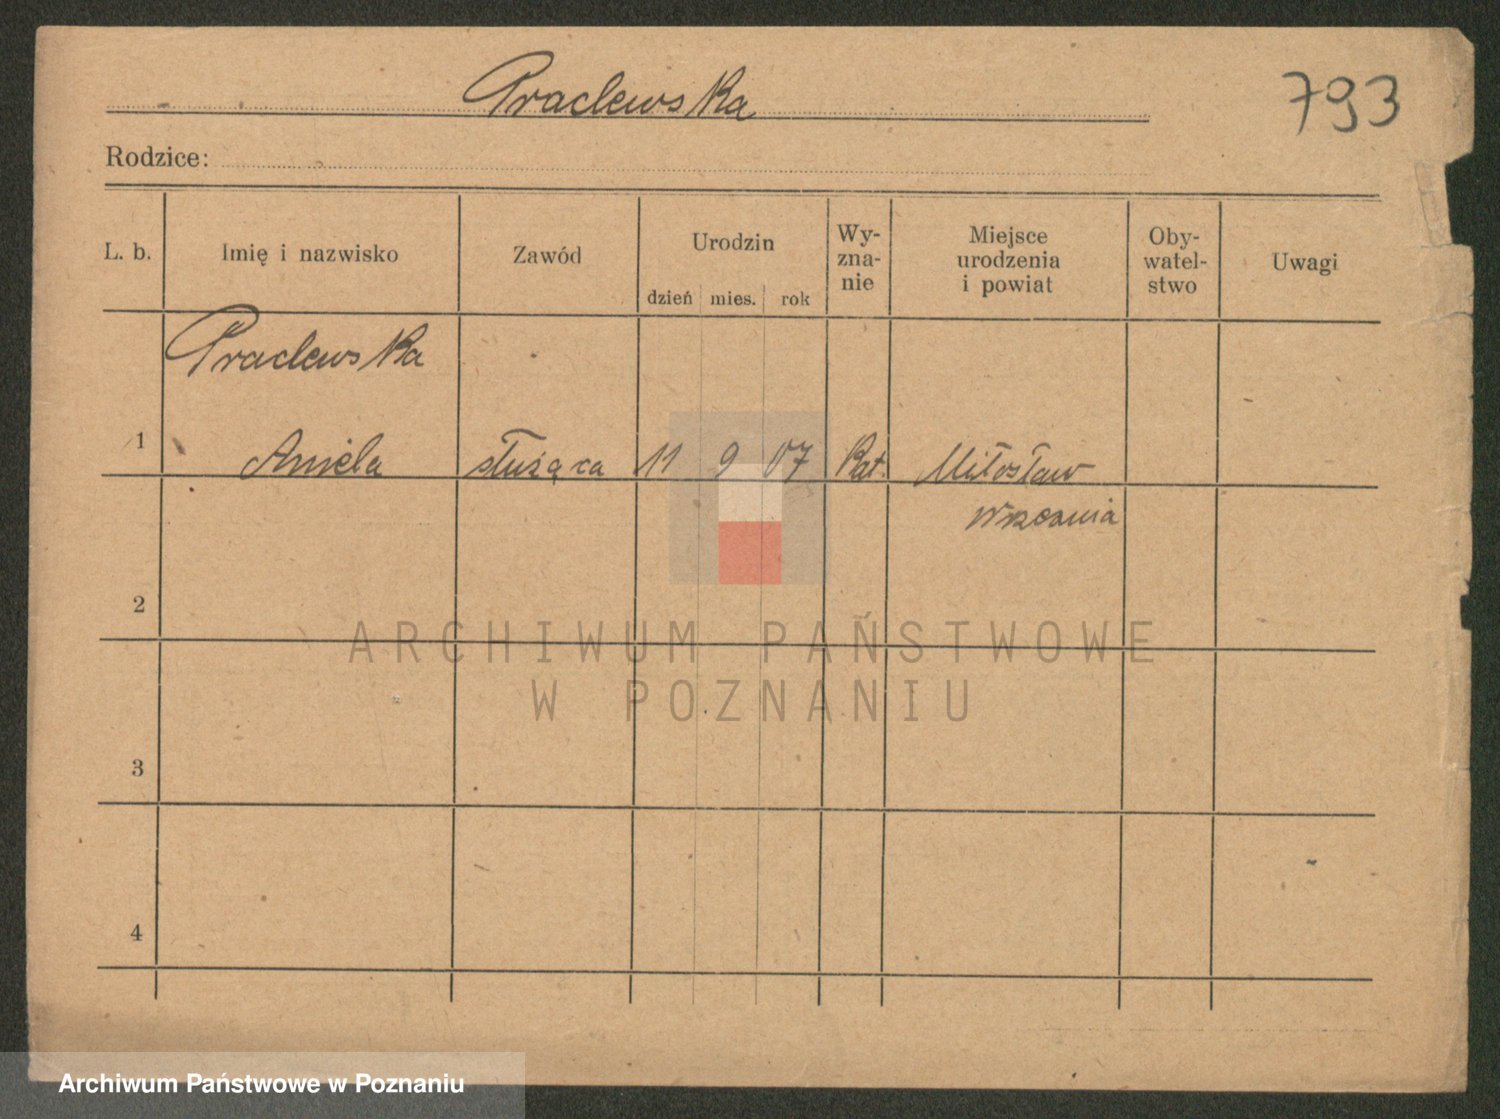 Praclewska
793
Rodzice:
L. b. Imię i nazwisko Zawód Urodzin dzień mies. rok Wy-
zna-
nie Miejsce
urodzenia
i powiat Oby-
watel-
stwo Uwagi
Praclewska
1 Aniela służąca 11 9 07 Kat. Miłosław
Września
2
ARCHIWUM PAŃSTWOWE
W POZNANIU
3
4
Archiwum Państwowe w Poznaniu